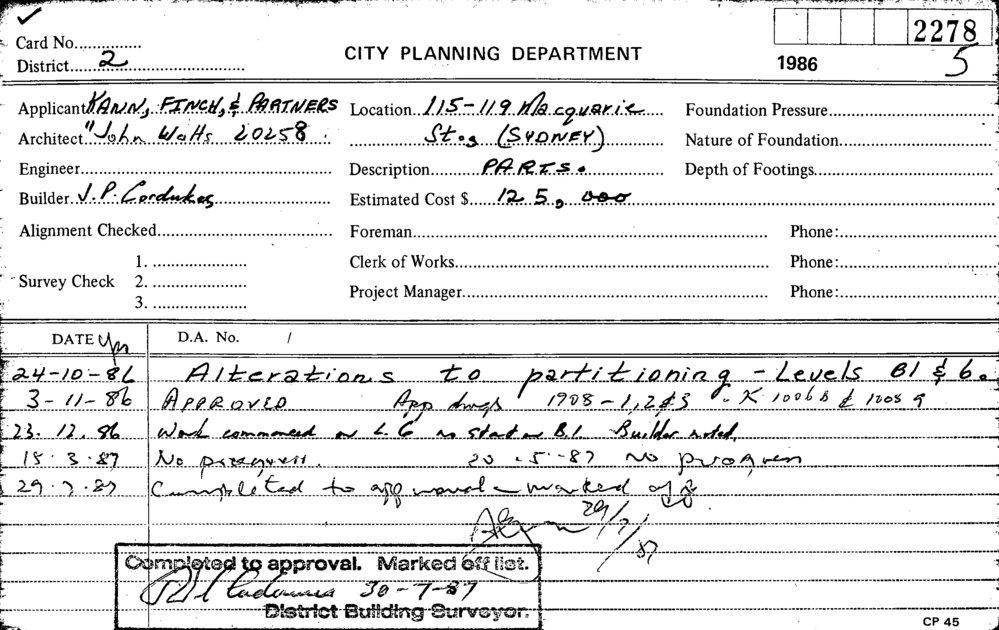 ✓ 2278
Card No.
District 2
CITY PLANNING DEPARTMENT
1986 5
Applicant KANN, FINCH, & PARTNERS
Architect "John Watts 20258
Engineer
Builder J. P. Cordukes
Alignment Checked
Survey Check 1.
2.
3.
Location 115-119 Macquarie
St., (SYDNEY)
Description PARTS.
Estimated Cost $ 125,000
Foreman Phone:
Clerk of Works Phone:
Project Manager Phone:
Foundation Pressure
Nature of Foundation
Depth of Footings
DATE D.A. No. /
24-10-86 Alterations to partitioning - Levels B1 & 6.
3-11-86 APPROVED App dwgs 1908-1,2&3
23.12.86 Work commenced on L.6 no start on B.1. Builder noted.
18.3.87 No progress. 20-5-87 No progress
29.7.87 Completed to approval - marked off
29/7/87
Completed to approval. Marked off list.
30-7-87
District Building Surveyor.
CP 45